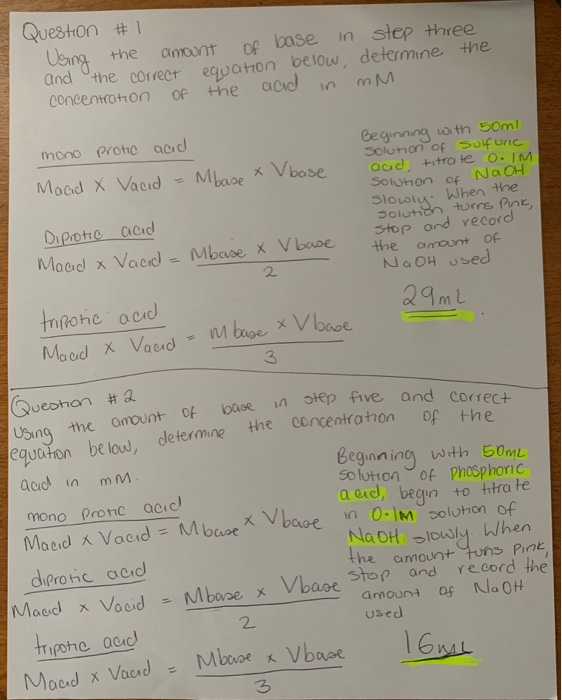 Question #1
Using the amount of base in step three
and the correct equation below, determine the
concentration of the acid in mM
mono protic acid
Macid x Vacid = Mbase x Vbase
Diprotic acid
Macid x Vacid = Mbase x Vbase
2
triprotic acid
Macid x Vacid = Mbase x Vbase
3
Beginning with 50ml
solution of sulfuric
acid, titrate 0.1M
solution of NaOH
slowly. When the
solution turns Pink,
stop and record
the amount of
NaOH used
29mL
Question #2
Using the amount of base in step five and correct
equation below, determine the concentration of the
acid in mM.
mono protic acid
Macid x Vacid = Mbase x Vbase
diprotic acid
Macid x Vacid = Mbase x Vbase
2
tripotic acid
Macid x Vacid = Mbase x Vbase
3
Beginning with 50mL
solution of phosphoric
acid, begin to titrate
in 0.1M solution of
NaOH slowly. When
the amount turns pink,
stop and record the
amount of NaOH
used
16mL